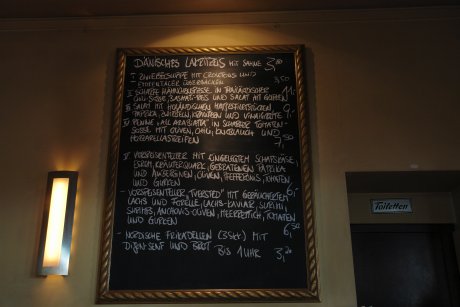 DÄNISCHES LAKRITZEIS MIT SAHNE 3,80
I ZWIEBELSUPPE MIT CROUTONS UND
EMMENTALER ÜBERBACKEN 3,50
II SCHARFE HÄHNCHENBRUST IN
SAUCE, BASMATI-REIS UND SALAT MIT GURKEN 11,-
III SALAT MIT HOLLÄNDISCHEN MATJESFILETSTÜCKEN,
PAPRIKA, ZWIEBELN, KRÄUTERN UND VINAIGRETTE 9,-
IV PENNE „ALL'ARRABIATA" IN SCHARFER TOMATEN-
SOSSE MIT OLIVEN, CHILI, KNOBLAUCH UND
MOZZARELLASTREIFEN 7,50
V VORSPEISENTELLER MIT EINGELEGTEM SCHAFSKÄSE,
KRÄUTERQUARK, GEBRATENEN PAPRIKA
UND AUBERGINEN, OLIVEN, PFEFFERONIS, TOMATEN
UND GURKEN 6,-
- VORSPEISENTELLER „TVERSTED" MIT GERÄUCHERTEM
LACHS UND FORELLE, LACHS-KAVIAR, SURIMI,
SHRIMPS, ANCHOVIS-OLIVEN, MEERRETTICH, TOMATEN
UND GURKEN 6,50
- NORDISCHE FRIKADELLEN (3 STK) MIT
DIJON-SENF UND BROT BIS 1 UHR 3,20
Toiletten